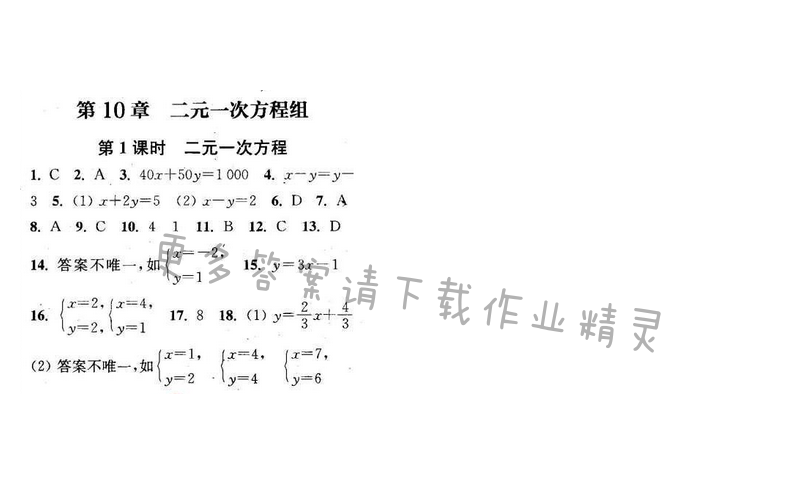 第10章 二元一次方程组
第1课时 二元一次方程
1. C 2. A 3. 40x+50y=1 000 4. x-y=y-
3 5. (1) x+2y=5 (2) x-y=2 6. D 7. A
8. A 9. C 10. 4 1 11. B 12. C 13. D
14. 答案不唯一,如{x=-2, y=1 15. y=3x-1
16. {x=2, y=2, {x=4, y=1 17. 8 18. (1) y=2/3x+4/3
(2) 答案不唯一,如{x=1, y=2 {x=4, y=4 {x=7, y=6
更多答案请下载作业精灵